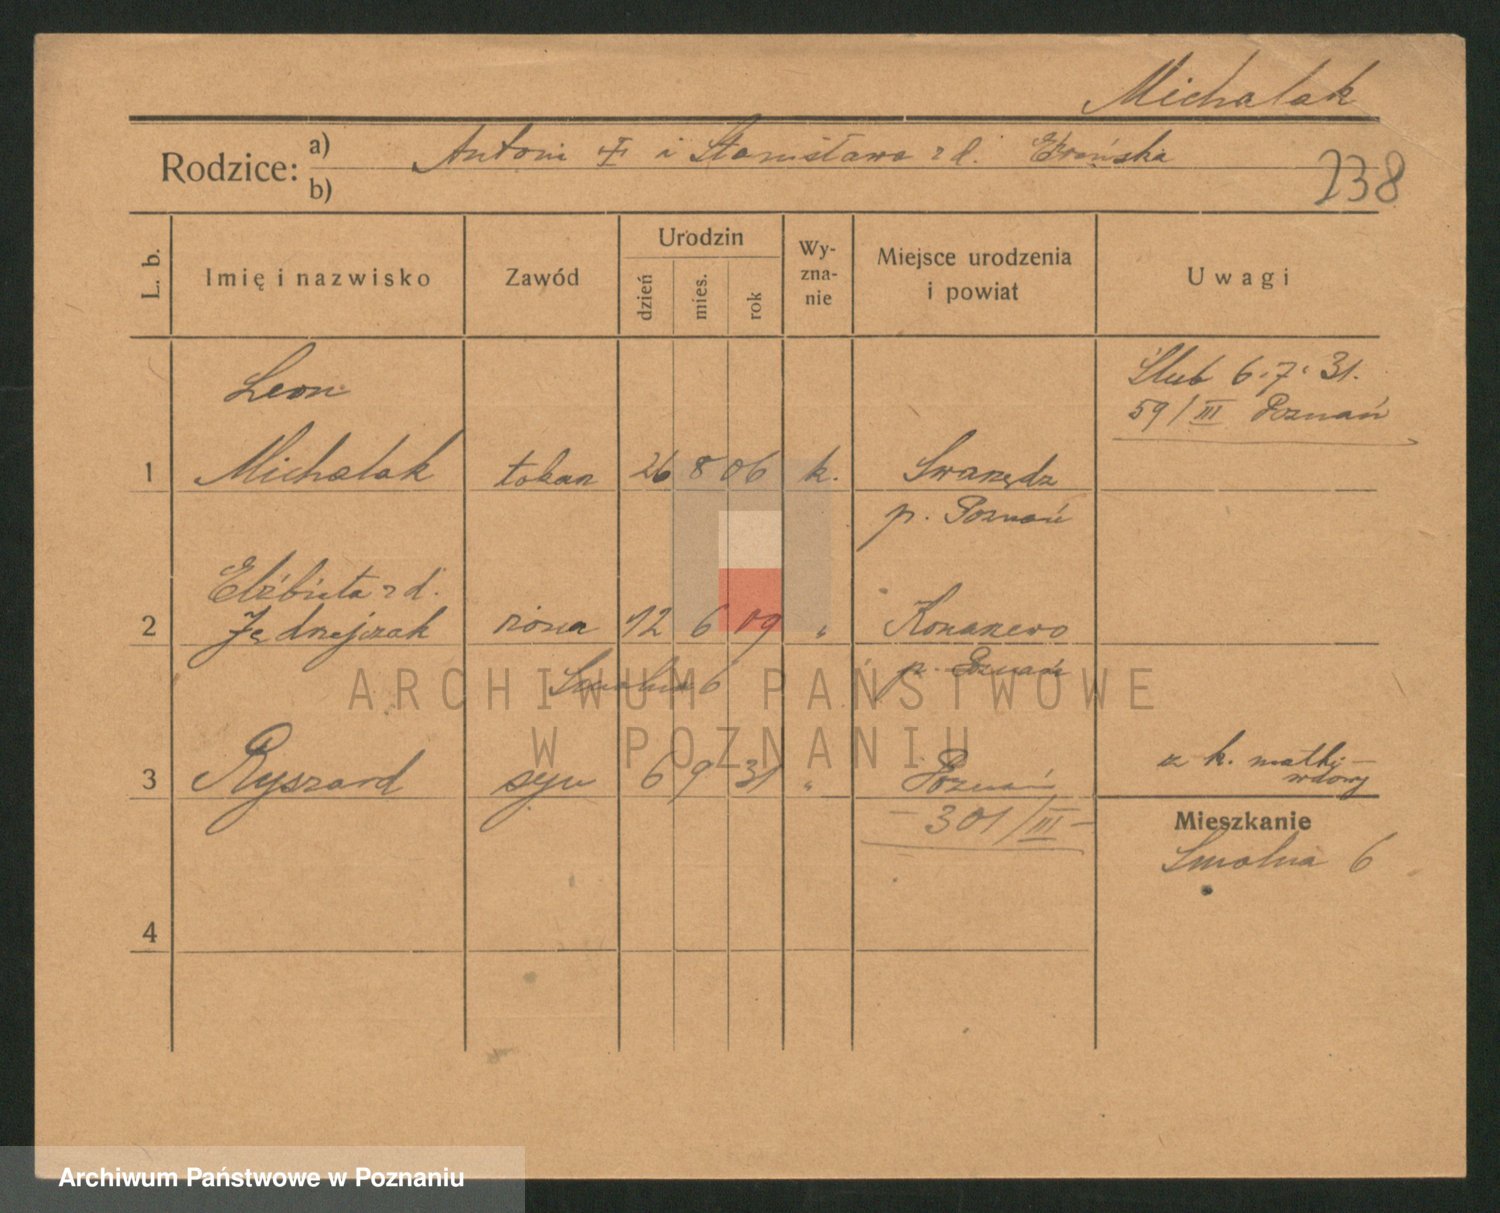 Michalak
Rodzice: a) Antoni i Stanisława z d.
b)
238
L. b.
Imię i nazwisko
Zawód
Urodzin
dzień
mies.
rok
Wy-
zna-
nie
Miejsce urodzenia
i powiat
Uwagi
Ślub 6.7.31.
59/III Poznań
Leon
1 Michalak tokarz 26 8 06 k. Swarzędz
p. Poznań
Elżbieta z d.
2 Jędrzejczak żona 12 6 09 " Konarzewo
p. Poznań
Smolna 6
3 Ryszard syn 6 9 31 " Poznań
301/III
z k. matki
wdowy
Mieszkanie
Smolna 6
4
ARCHIWUM PAŃSTWOWE
W POZNANIU
Archiwum Państwowe w Poznaniu